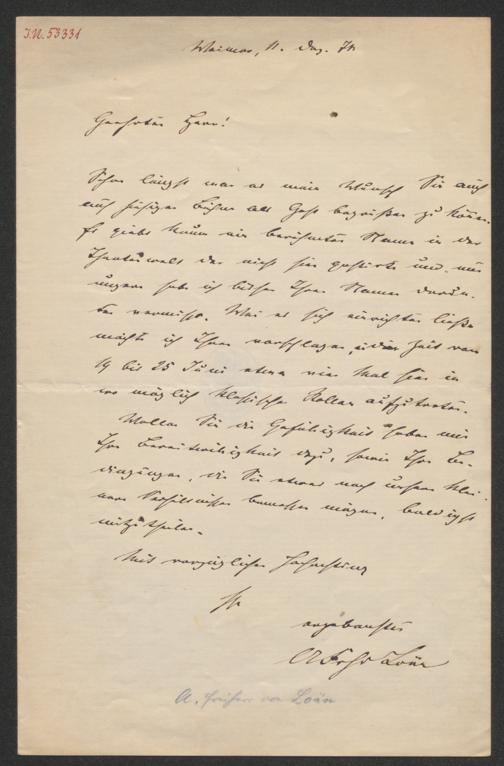 I.N. 53331
Weimar, 11. Dez. 74
Geehrter Herr!
Schon längst war es mein Wunsch Sie auch
auf hiesiger Bühne als Gast begrüßen zu können.
Es giebt kaum ein berühmter Name in der
Theaterwelt der nicht hier gastirte und nur
ungern habe ich bisher Ihren Namen darun-
ter vermißt. Wenn es sich einrichten ließe
möchte ich Ihnen vorschlagen, in der Zeit vom
19 bis 25 Juni etwa vier Mal hier in
wo möglich klassischen Rollen aufzutreten.
Wollen Sie die Gefälligkeit haben mir
Ihre Bereitwilligkeit dazu, sowie Ihre Be-
dingungen, die Sie etwas nach unsern klei-
nern Verhältnissen bemessen mögen, baldigst
mitzutheilen.
Mit vorzüglicher Hochachtung
Ihr
ergebenster
A Frhr v Loën
A. Freiherr von Loën